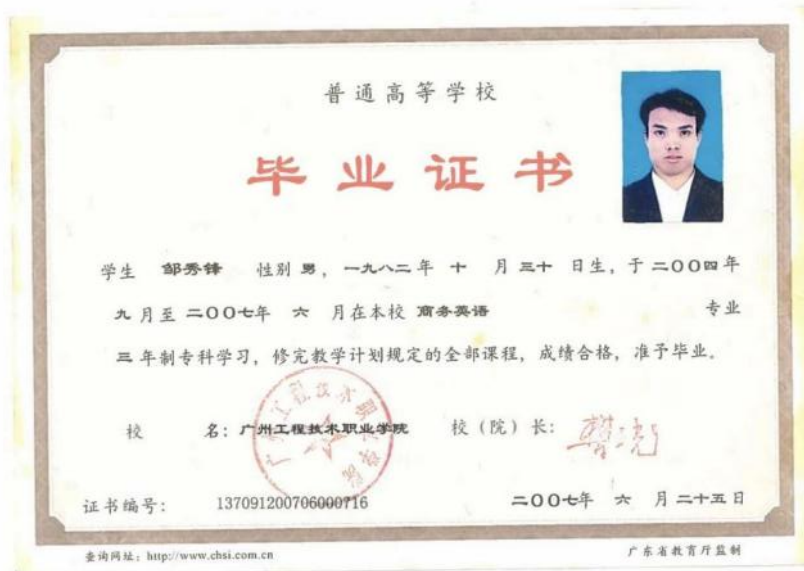 普通高等学校
毕业证书
学生 邹秀锋 性别 男，一九八二 年 十 月 三十 日生，于 二〇〇四 年
九 月至 二〇〇七年 六 月在本校 商务英语 专业
三 年制专科学习，修完教学计划规定的全部课程，成绩合格，准予毕业。
校 名：广州工程技术职业学院 校（院）长：
广州工程技术职业学院
证书编号： 137091200706000716 二〇〇七年 六 月 二十五 日
查询网址：http://www.chsi.com.cn 广东省教育厅监制